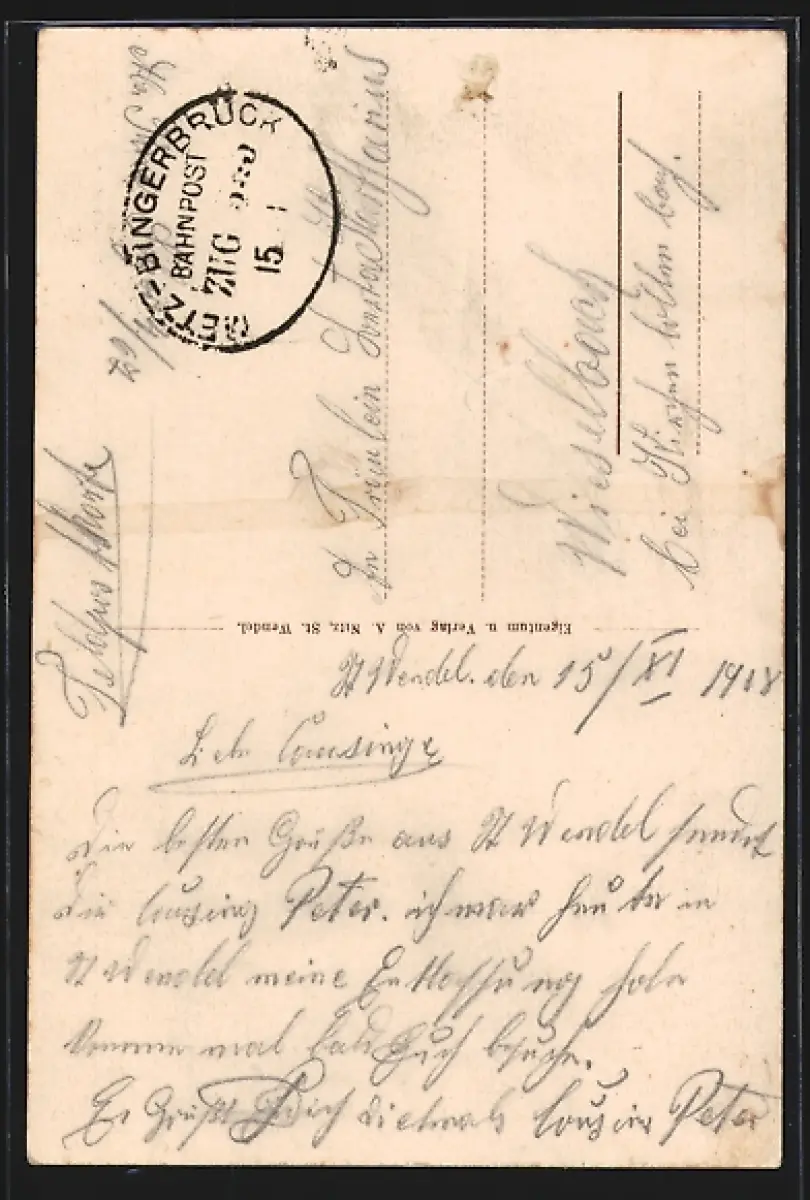 METZ-BINGERBRÜCK
BAHNPOST
ZUG
15 1
Feldpostkarte
An Fräulein
Wieselbach
bei Kirchenbollenbach.
Eigentum u. Verlag von A. Nitz, St. Wendel.
St Wendel. den 15/XI 1918
Liebe Cousinge
Die besten Grüße aus St Wendel sendet
Dir Cousing Peter. ich war heute in
St Wendel meine Entlassung holen
komme mal bald Euch besuchen.
Es Grüßt Dich vielmals Cousin Peter